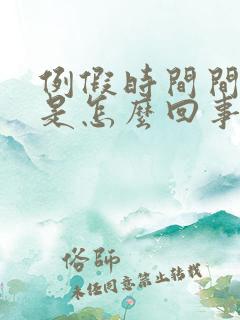 例假時間間
是怎麼回事
俗師
未经同意禁止转载